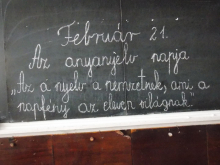 Február 21.
Az anyanyelv napja
„Az a nyelv a nemzetnek, ami a
napfény az eleven világnak."